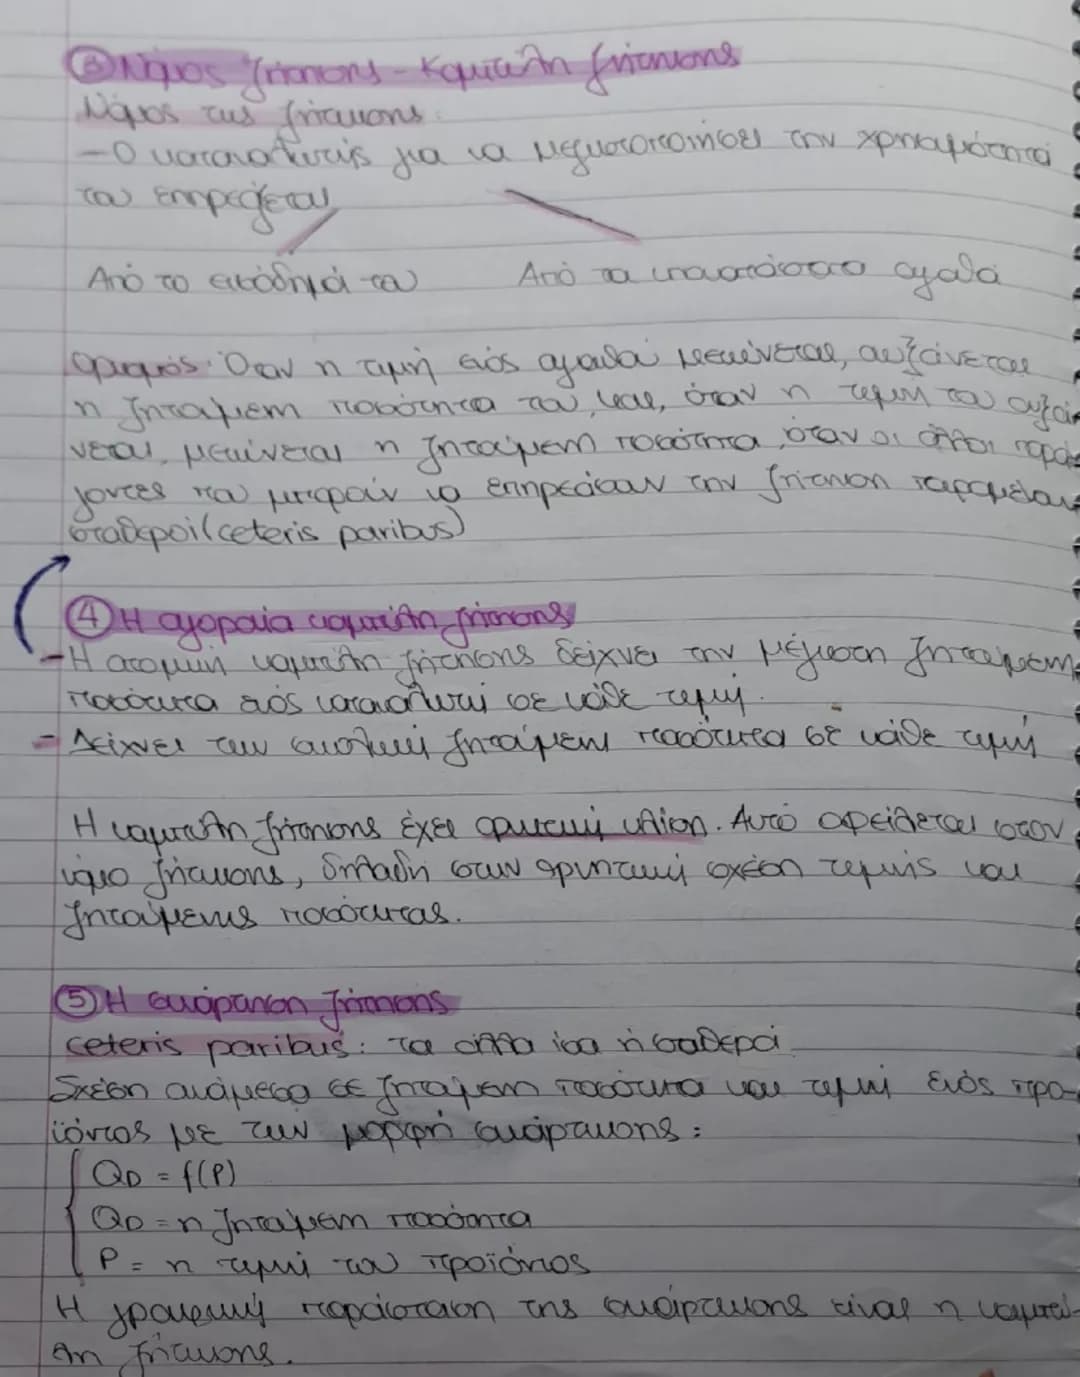 ③ Νόμος ζήτησης - Καμπύλη ζήτησης
Νόμος της ζήτησης:
- Ο καταναλωτής για να μεγιστοποιήσει την χρησιμότητά
του επηρεάζεται
Από το εισόδημά του Από τα υποκατάστατα αγαθά
Ορισμός: Όταν η τιμή ενός αγαθού μειώνεται, αυξάνεται
η ζητούμενη ποσότητα του, και, όταν η τιμή του αυξά-
νεται, μειώνεται η ζητούμενη ποσότητα, όταν οι άλλοι παρά-
γοντες που μπορούν να επηρεάσουν την ζήτηση παραμένουν
σταθεροί (ceteris paribus)
④ Η αγοραία καμπύλη ζήτησης
- Η ατομική καμπύλη ζήτησης δείχνει την μέγιστη ζητούμενη
ποσότητα ενός καταναλωτή σε κάθε τιμή.
- Δείχνει την συνολική ζητούμενη ποσότητα σε κάθε τιμή
Η καμπύλη ζήτησης έχει αρνητική κλίση. Αυτό οφείλεται στον
νόμο ζήτησης, δηλαδή στην αρνητική σχέση τιμής και
ζητούμενης ποσότητας.
⑤ Η συνάρτηση ζήτησης
ceteris paribus: τα άλλα ίσα ή σταθερά
Σχέση ανάμεσα σε ζητούμενη ποσότητα και τιμή ενός προ-
ϊόντος με την μορφή συνάρτησης:
QD = f(P)
QD = η ζητούμενη ποσότητα
P = η τιμή του προϊόντος
Η γραφική παράσταση της συνάρτησης είναι η καμπύ-
λη ζήτησης.